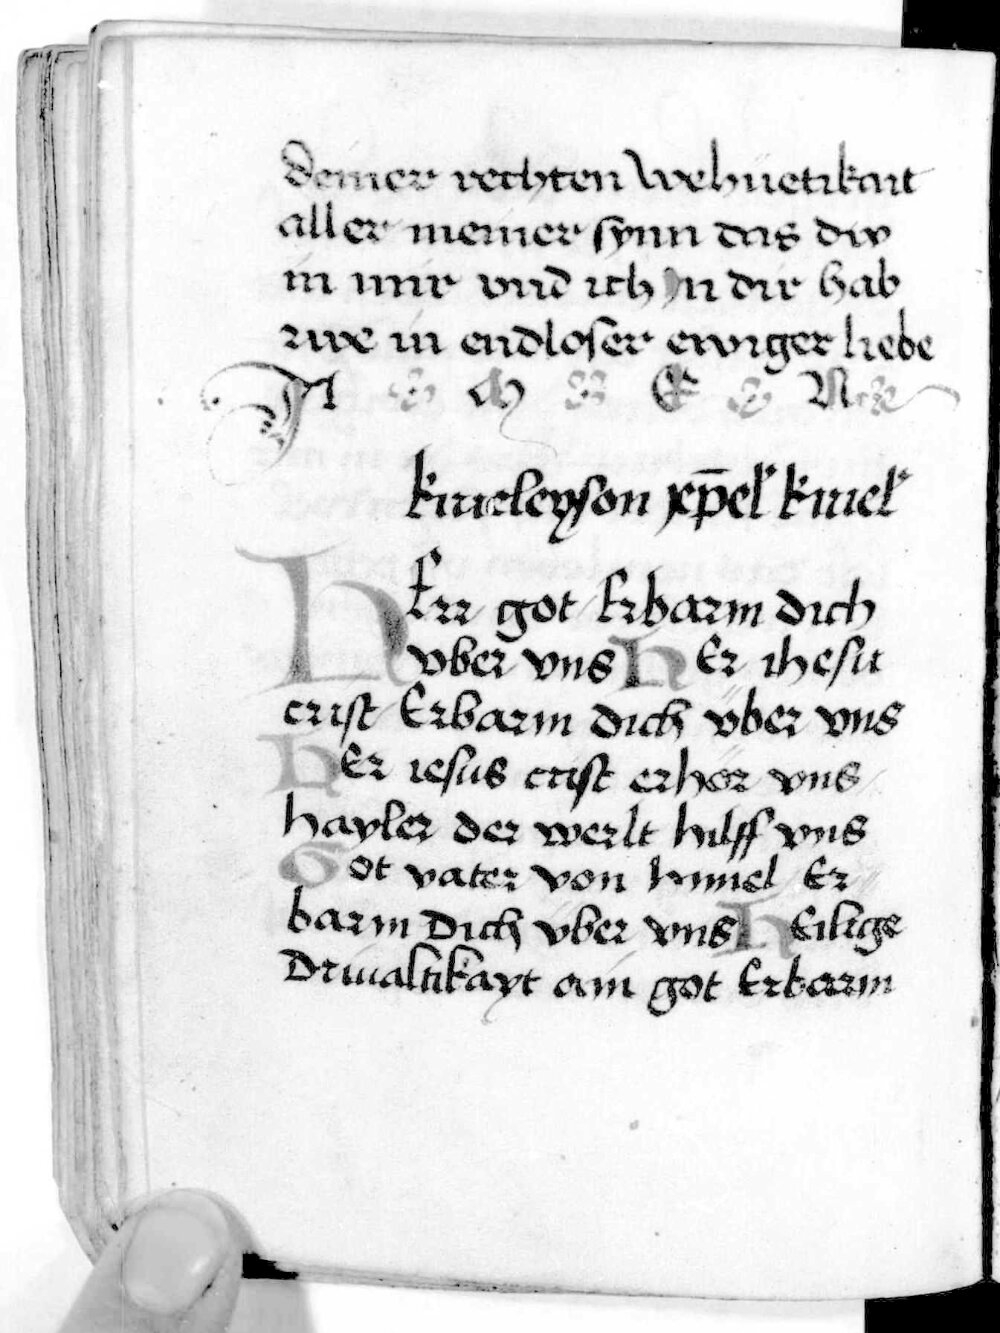 deiner rechten wehuetikait
aller meiner synn das dw
in mir vnd ich in dir hab
rwe in endloser ewiger liebe
A M E N
kirieleyson xp̄el' kiriel'
HErr got Erbarm dich
vber vns HEr ihesu
crist Erbarm dich vber vns
HEr iesus crist erhör vns
hayler der werlt hilff vns
Got vater von himel Er
barm Dich vber vns HEilige
Driualtikayt ain got Erbarm